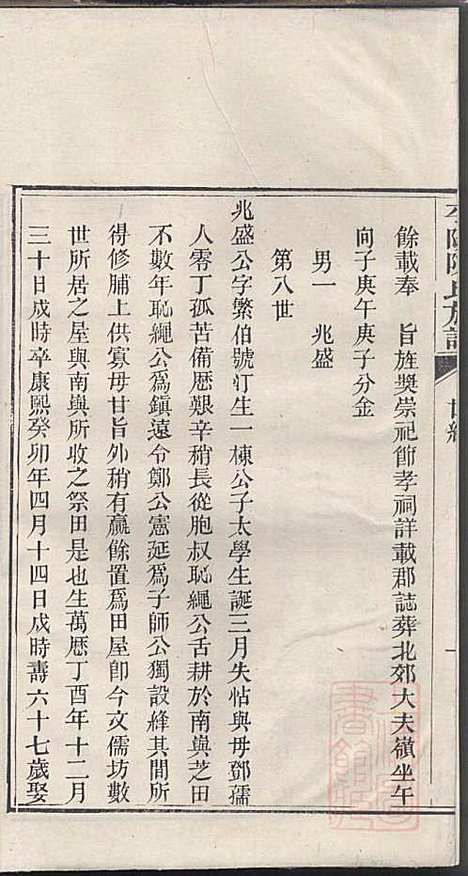 餘載奉　旨旌獎崇祀節孝祠詳載郡誌葬北郊大夫嶺坐午
向子庚午庚子分金
男一　兆盛
第八世
兆盛公字繁伯號汀生一棟公子太學生誕三月失怙與毋鄧孺
人零丁孤苦備歷艱辛稍長從胞叔恥繩公舌耕於南與芝田
不數年恥繩公爲鎮遠令鄭公憲延爲子師公獨設絳其間所
得修脯上供寡毋甘旨外稍有贏餘置爲田屋卽今文儒坊數
世所居之屋與南與所收之祭田是也生萬歷丁酉年十二月
三十日戌時卒康熙癸卯年四月十四日戌時壽六十七歲娶